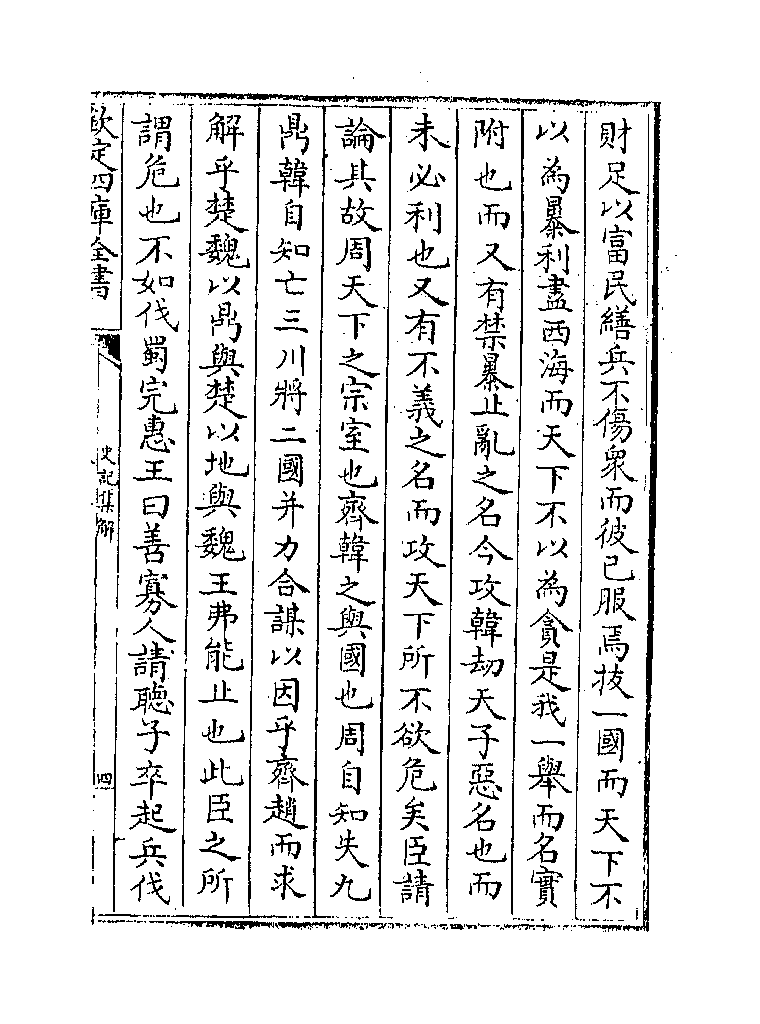 財足以富民繕兵不傷衆而彼已服焉抜一國而天下不
以為暴利盡西海而天下不以為貪是我一舉而名實
附也而又有禁暴止亂之名今攻韓劫天子惡名也而
未必利也又有不義之名而攻天下所不欲危矣臣請
論其故周天下之宗室也齊韓之與國也周自知失九
鼎韓自知亡三川將二國并力合謀以因乎齊趙而求
解乎楚魏以鼎與楚以地與魏王弗能止也此臣之所
謂危也不如伐蜀完惠王曰善寡人請聽子卒起兵伐
欽定四庫全書
史記集解
四